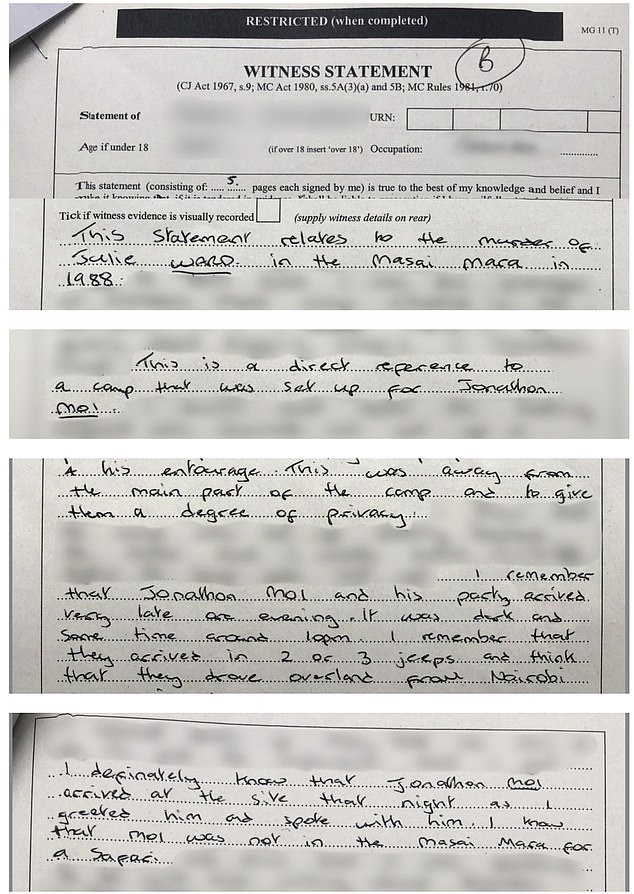 RESTRICTED (when completed)
MG 11 (T)
B
WITNESS STATEMENT
(CJ Act 1967, s.9; MC Act 1980, ss.5A(3)(a) and 5B; MC Rules 1981, r.70)
Statement of
URN:
Age if under 18 (if over 18 insert 'over 18') Occupation:
This statement (consisting of: ..... 5. ..... pages each signed by me) is true to the best of my knowledge and belief and I
Tick if witness evidence is visually recorded (supply witness details on rear)
This Statement relates to the murder of
Julie WARD in the Masai Mara in
1988.
This is a direct reference to
a camp that was set up for Jonathon
MOI.
& his entourage. This was away from
the main part of the camp and to give
them a degree of privacy.
I remember
that Jonathon MOI and his party arrived
very late one evening. It was dark and
some time around 10pm. I remember that
they arrived in 2 or 3 jeeps and think
that they drove overland from Nairobi
I definately know that Jonathon MOI
arrived at the site that night as I
greeted him and spoke with him. I know
that MOI was not in the Masai Mara for
a Safari.